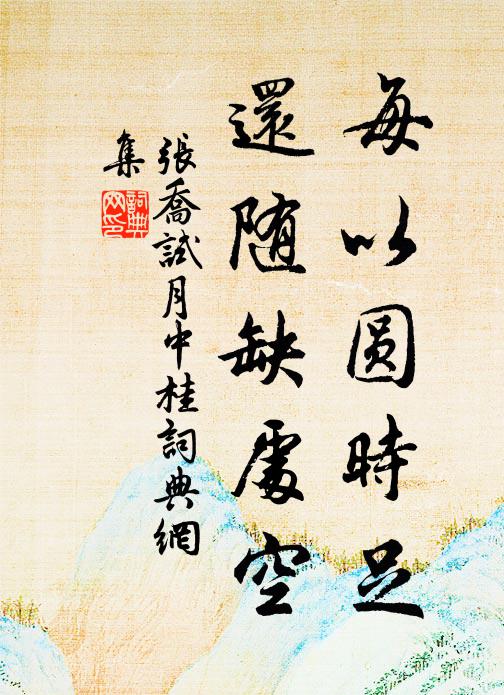 每以圆時足
還随缺處空
張喬試月中桂詞典網
集
詞典
网印